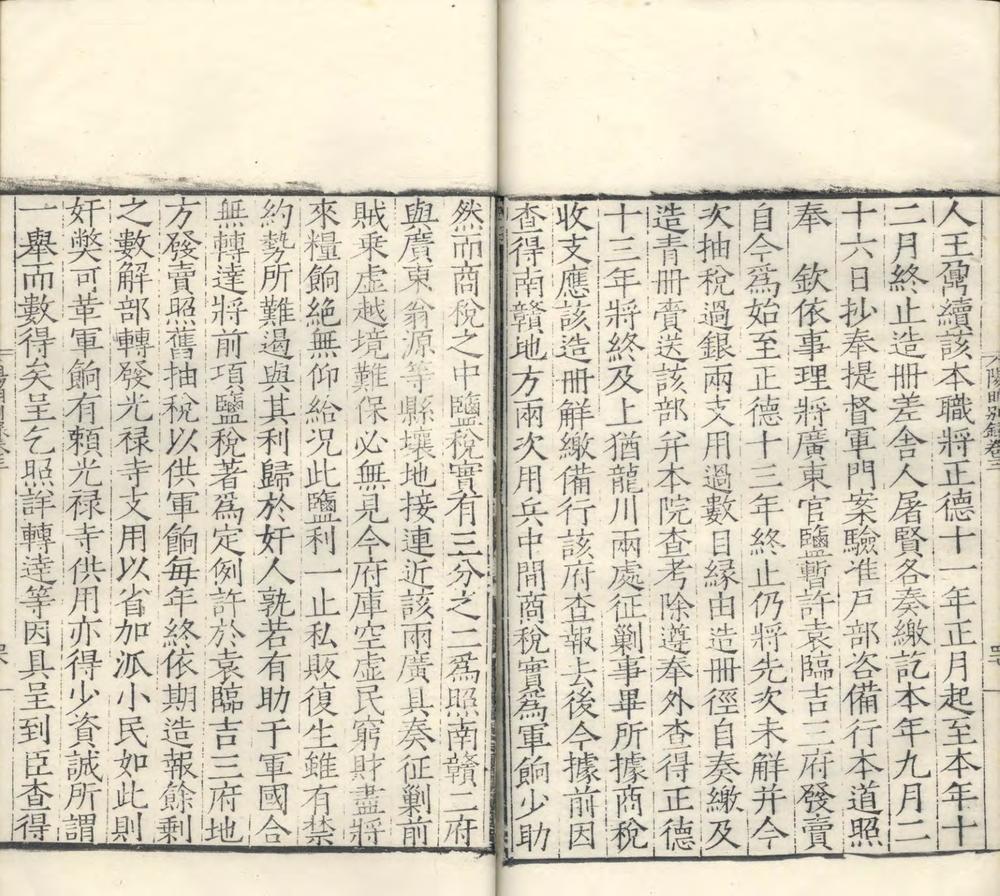 人王鼐續該本職將正德十一年正月起至本年十
二月終止造冊差舍人屠賢各奏繳訖本年九月二
十六日抄奉提督軍門案驗准戶部咨備行本道照
奉　欽依事理將廣東官鹽暫許袁臨吉三府發賣
自今爲始至正德十三年終止仍將先次未解并今
次抽稅過銀兩支用過數目緣由造冊徑自奏繳及
造青冊賫送該部并本院查考除遵奉外查得正德
十三年將終及上猶龍川兩處征剿事畢所據商稅
收支應該造冊解繳備行該府查報去後今據前因
查得南贛地方兩次用兵中間商稅實爲軍餉少助
然而商稅之中鹽稅實有三分之二爲照南贛二府
與廣東翁源等縣壤地接連近該兩廣具奏征剿前
賊乘虛越境難保必無見今府庫空虛民窮財盡將
來糧餉絕無仰給况此鹽利一止私販復生雖有禁
約勢所難遏與其利歸於奸人孰若有助于軍國合
無轉達將前項鹽稅著爲定例許於袁臨吉三府地
方發賣照舊抽稅以供軍餉每年終依期造報餘剩
之數解部轉發光禄寺支用以省加派小民如此則
奸獘可革軍餉有賴光禄寺供用亦得少資誠所謂
一舉而數得矣呈乞照詳轉達等因具呈到臣查得